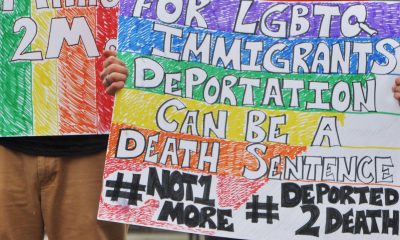 2M.
FOR LGBTQ
IMMIGRANTS
DEPORTATION
CAN BE A
DEATH SENTENCE
#NOT1
MORE
#DEPORTED
2DEATH